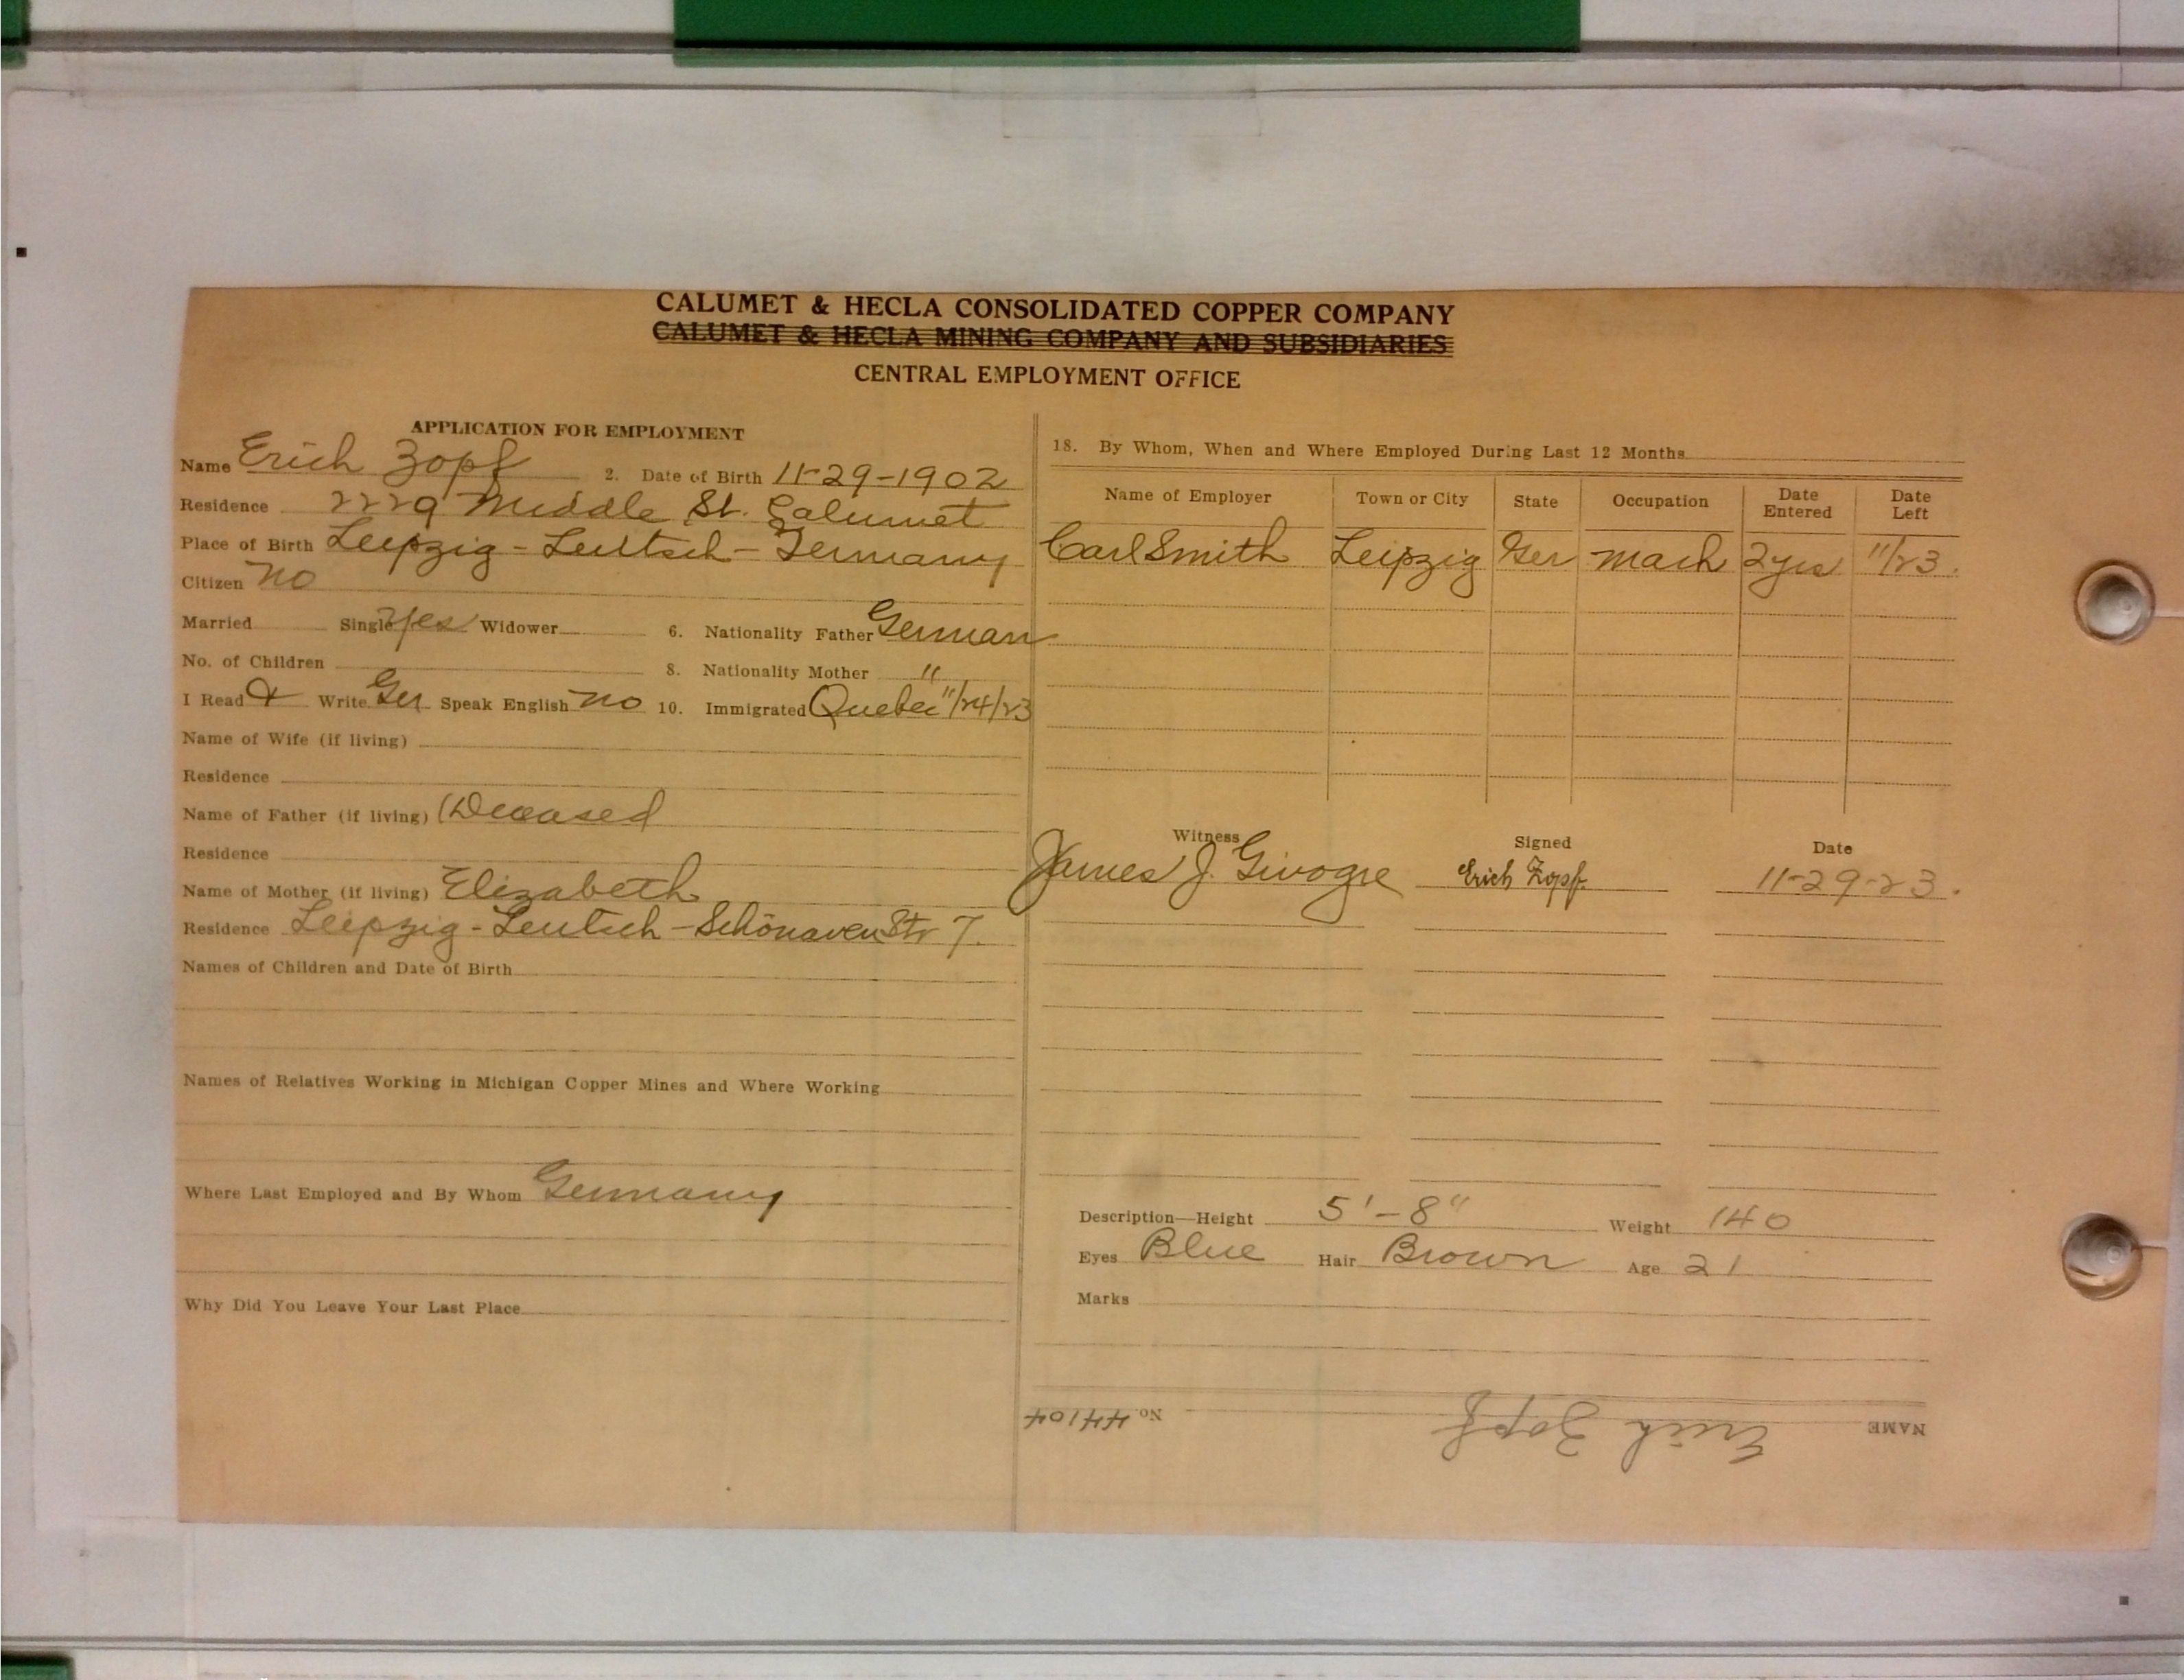 CALUMET & HECLA CONSOLIDATED COPPER COMPANY
CALUMET & HECLA MINING COMPANY AND SUBSIDIARIES
CENTRAL EMPLOYMENT OFFICE
APPLICATION FOR EMPLOYMENT
Name Erich Zopf 2. Date of Birth 11-29-1902
Residence 2229 Middle St. Calumet
Place of Birth Leipzig - Leutsch - Germany
Citizen no
Married Single yes Widower 6. Nationality Father German
No. of Children 8. Nationality Mother "
I Read & Write Ger Speak English no 10. Immigrated Quebec 11/24/23
Name of Wife (if living)
Residence
Name of Father (if living) (Deceased
Residence
Name of Mother (if living) Elizabeth
Residence Leipzig - Leutsch - Schönauen Str 7.
Names of Children and Date of Birth
Names of Relatives Working in Michigan Copper Mines and Where Working
Where Last Employed and By Whom Germany
Why Did You Leave Your Last Place
18. By Whom, When and Where Employed During Last 12 Months
Name of Employer Town or City State Occupation Date Entered Date Left
Carl Smith Leipzig Ger mach 2 yrs 11/23.
Witness Signed Date
James J. Erich Zopf. 11-29-23.
Description—Height 5'-8" Weight 140
Eyes Blue Hair Brown Age 21
Marks
NAME Erich Zopf No. 44104